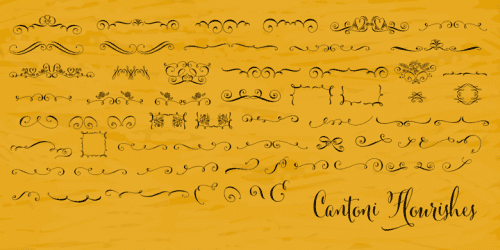 Cantoni Flourishes